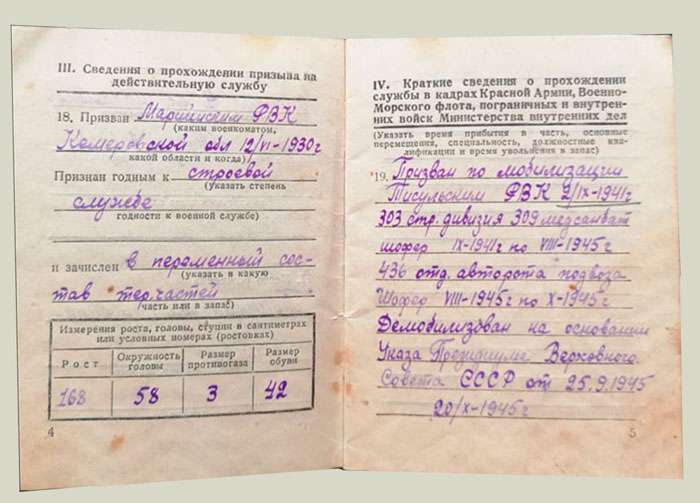 III. Сведения о прохождении призыва на
действительную службу
18. Призван Мариинским РВК
(каким военкоматом,
Кемеровской обл 12/VI-1930г
какой области и когда)
Признан годным к строевой
(указать степень
службе
годности к военной службе)
и зачислен в переменный сос-
(указать в какую
тав тер.частей
часть или в запас)
Измерения роста, головы, ступни в сантиметрах
или условных номерах (ростовках)
Рост Окружность головы Размер противогаза Размер обуви
168 58 3 42
4
IV. Краткие сведения о прохождении
службы в кадрах Красной Армии, Военно-
Морского флота, пограничных и внутрен-
них войск Министерства внутренних дел
(Указать время прибытия в часть, основные
перемещения, специальность, должностные ква-
лификации и время увольнения в запас)
19. Призван по мобилизации
Тисульским РВК 2/IX-1941г
303 стр. дивизия 309 медсанбат
шофер IX-1941г по VIII-1945г
436 отд. авторота подвоза
Шофер VIII-1945г по X-1945г
Демобилизован на основании
Указа Президиума Верховного
Совета СССР от 25.9.1945
20/X-1945г
5